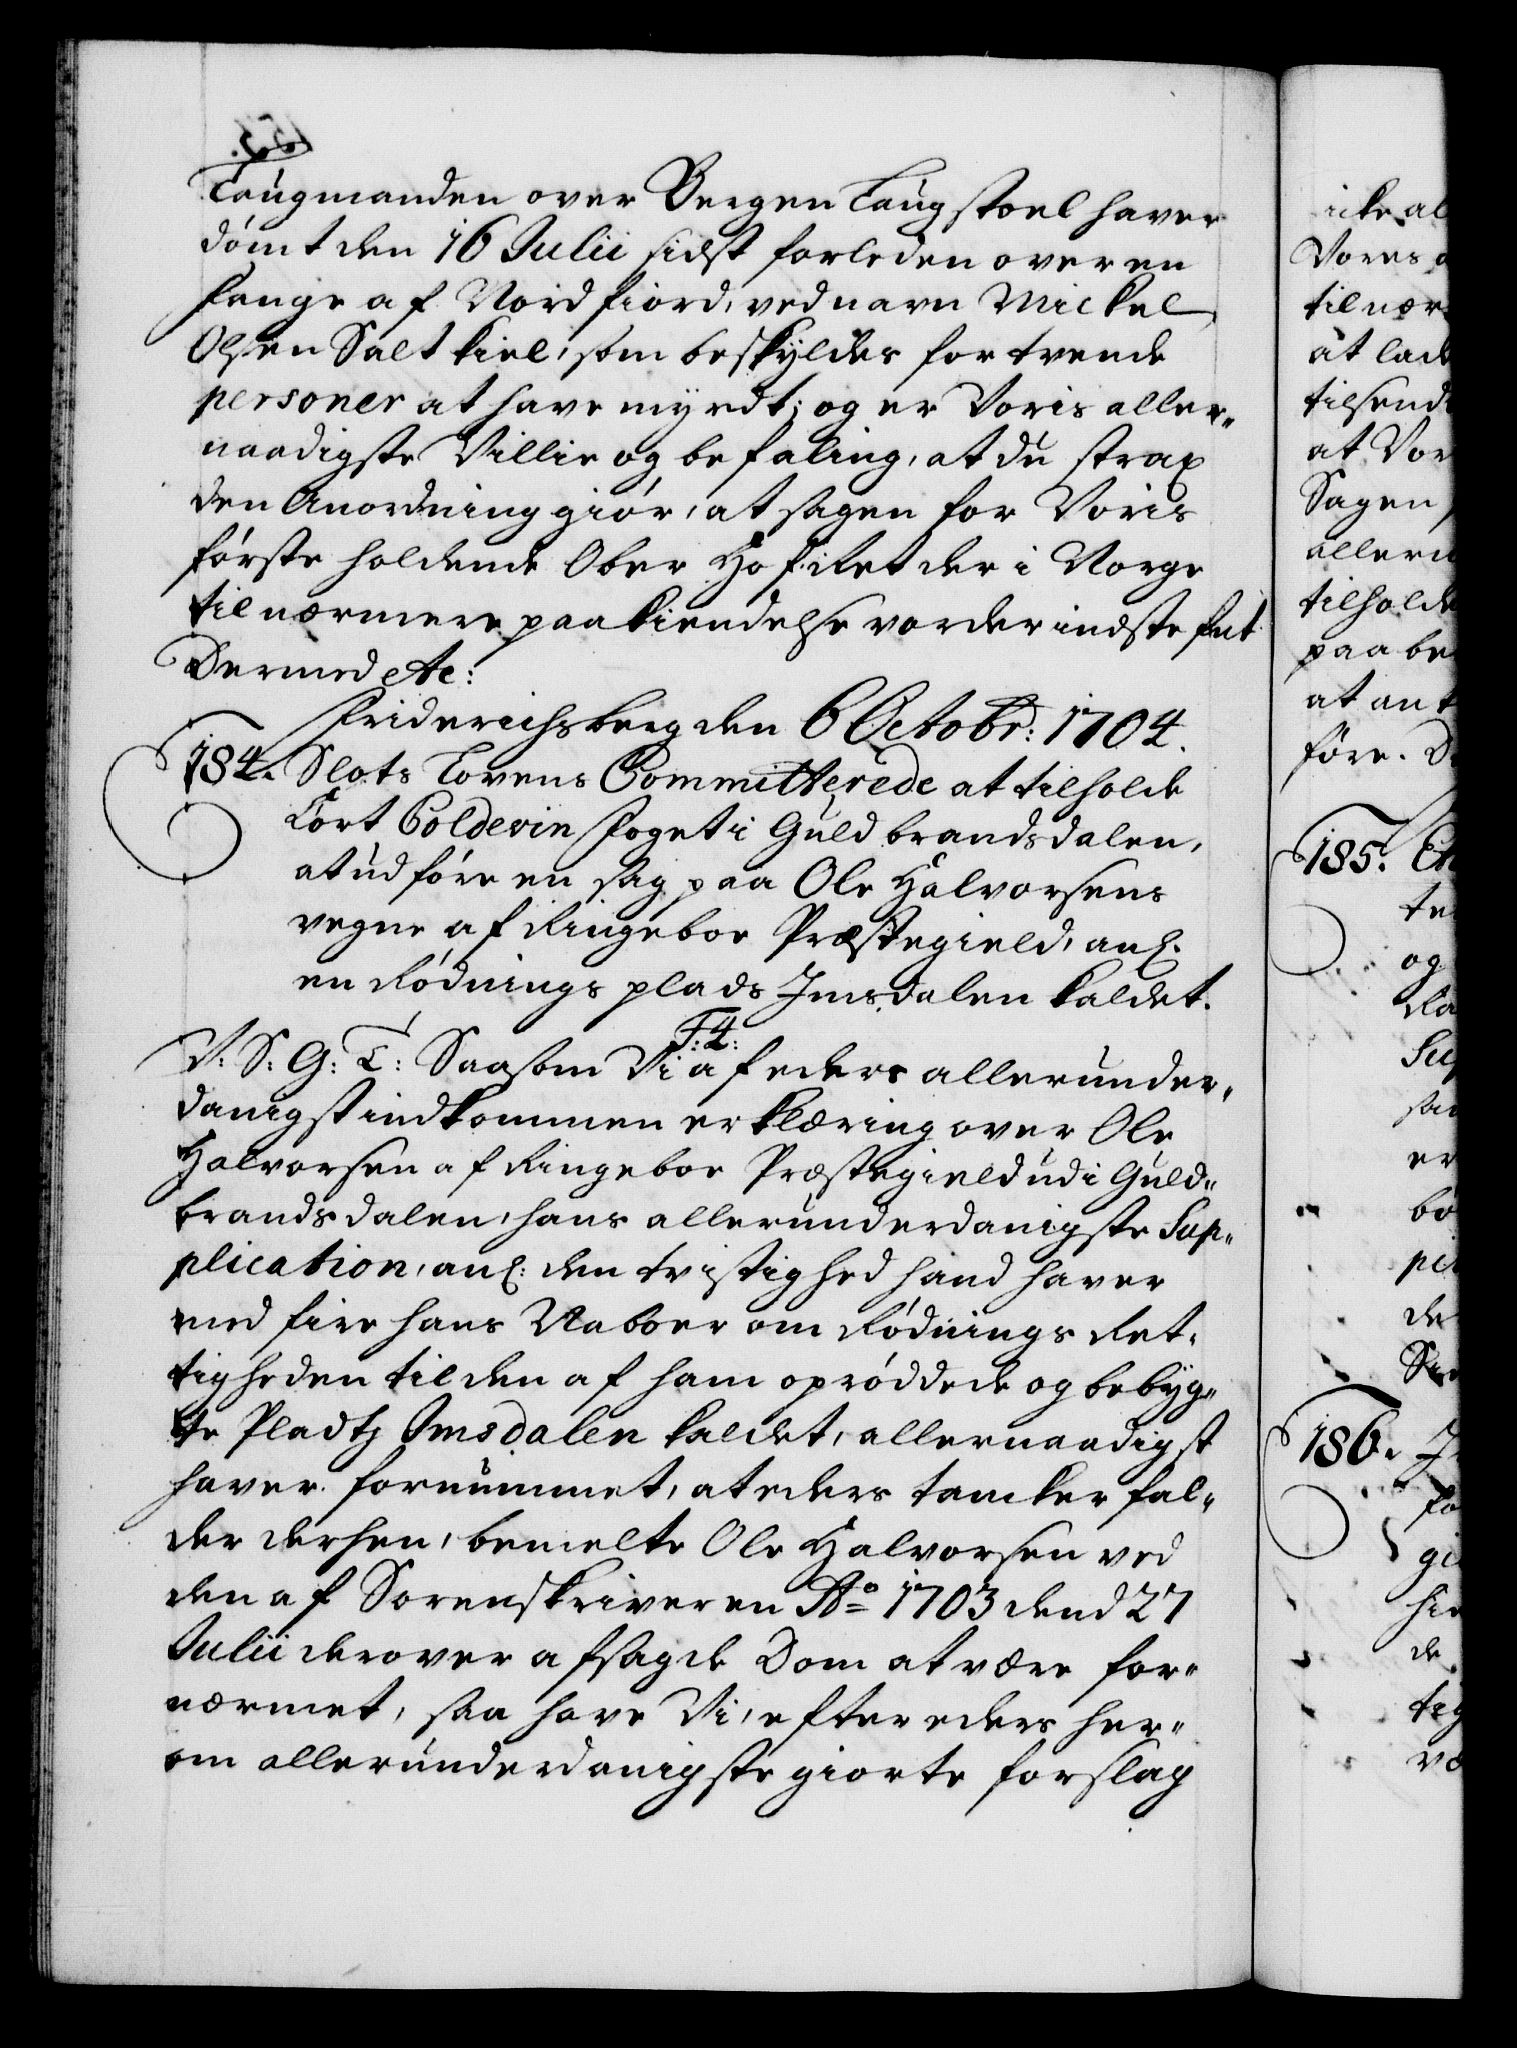 Laugmanden over Bergen Laugstoel haver
dømt den 16 Julii sidst forleden over en
fange af Nordfiord, ved navn Mickel
Olsen Saltkiel, som beskyldes for tvende
personer at have myrdt; og er Voris aller„
naadigste Villie og befaling, at du strax
den Anordning giør, at sagen for Voris
første holdende Ober Hof Ret der i Norge
til nærmere paakiendelse vorder indstefnt
Dermed etc:
Friderichsberg den 6 Octobr: 1704.
184. Slots Lovens Committerede at tilholde
Cort Coldevin foget i Guldbrandsdalen,
at udføre en sag paa Ole Halvorsens
vegne af Ringeboe Præstegield, anl.
en Rødnings plads Imsdalen kaldet.
F: 4:
V: S: G: T: Saasom Vi af eders allerunder„
danigst indkommen erklæring over Ole
Halvorsen af Ringeboe Præstegield udi Guld„
brandsdalen, hans allerunderdanigste Sup„
plication, anl: den tvistighed hand haver
med fire hans Naboer om Rødnings Ret„
tigheden til den af ham oprøddede og bebyg„
te Pladtz Imsdalen kaldet, allernaadigst
haver fornummet, at eders tancker fal„
der derhen, bemelte Ole Halvorsen ved
den af Sorenskriveren Ao 1703 dend 27
Julii derover afsagde Dom at være for„
nærmet, saa have Vi, efter eders her„
om allerunderdanigste giorte forslag
icke al
Vores a
til nær
at lade
tilsend
at Vor
Sagen
allern
tilholde
paa be
at an t
føre. D
185.
og
Sup
er
186.